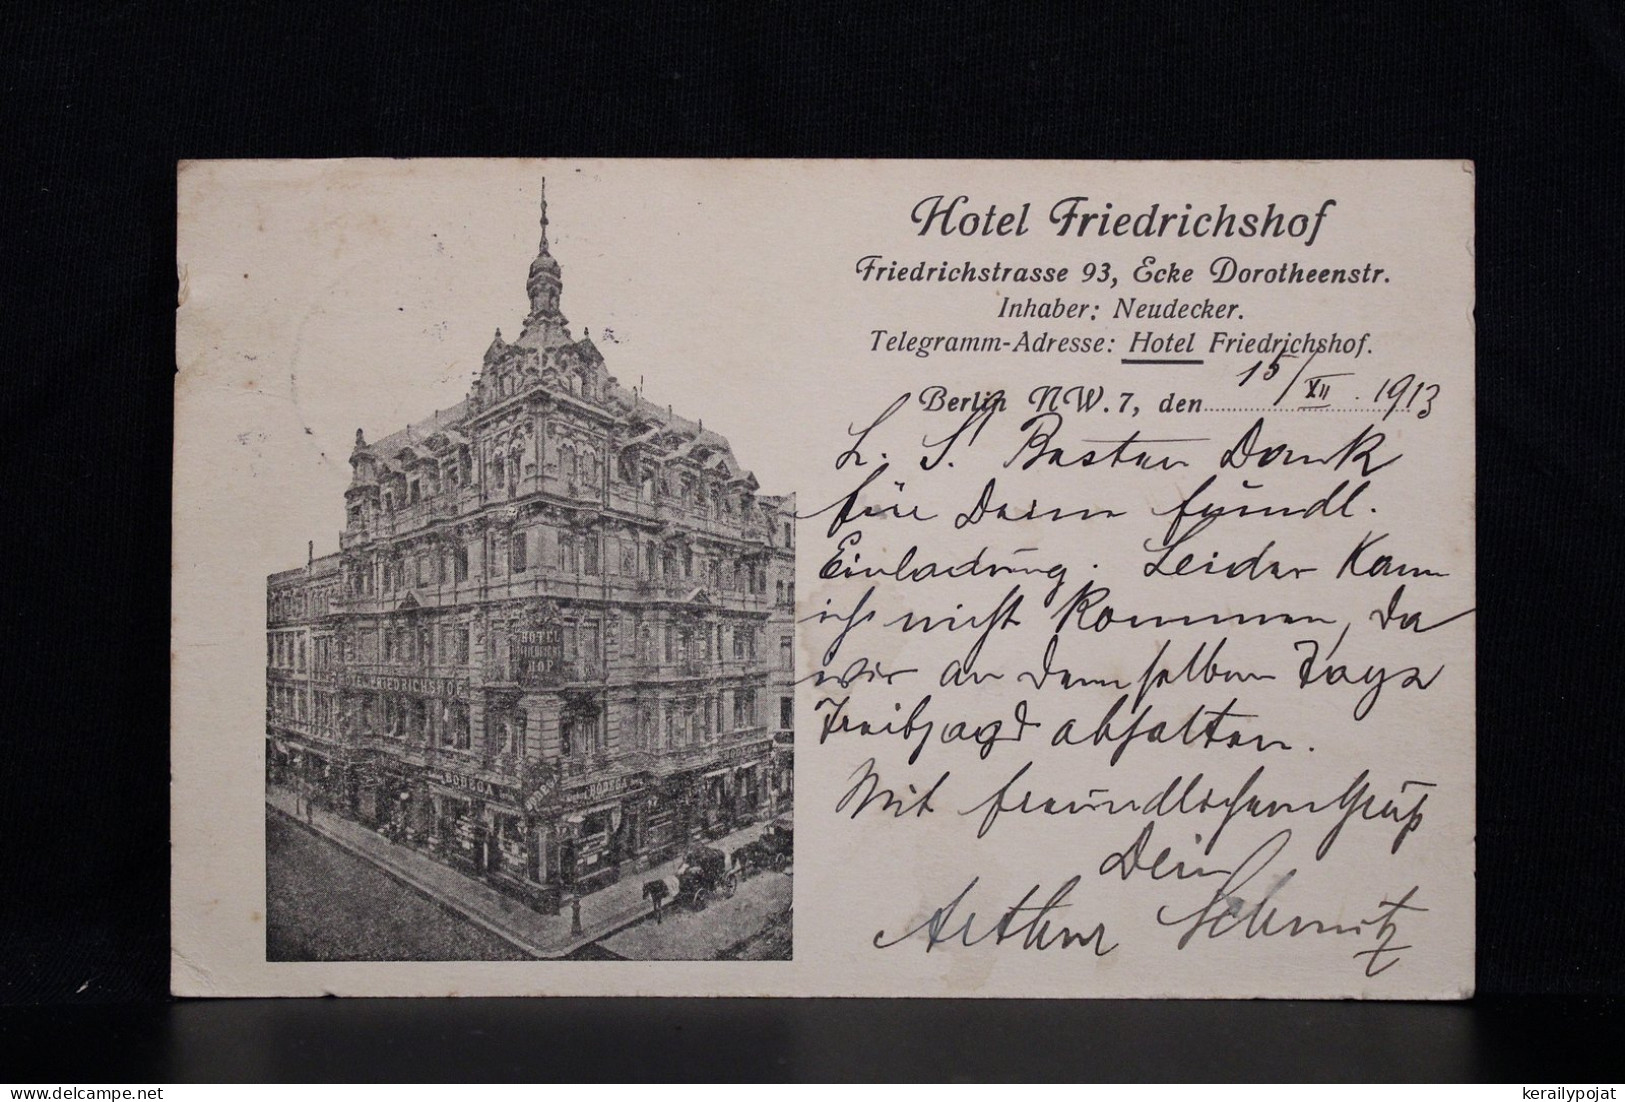 Hotel Friedrichshof
Friedrichstrasse 93, Ecke Dorotheenstr.
Inhaber: Neudecker.
Telegramm-Adresse: Hotel Friedrichshof.
Berlin NW. 7, den 15/XII. 1913
L. S. Besten Dank
für Deine freundl.
Einladung. Leider kann
ich nicht kommen, da
wir an demselben Tage
Treibjagd abhalten.
Mit freundlichem Gruß
Dein
Arthur Schmitz
HOTEL
HOF
HOTEL FRIEDRICHSHOF
BODEGA
BODEGA
www.delcampe.net
kerailypojat